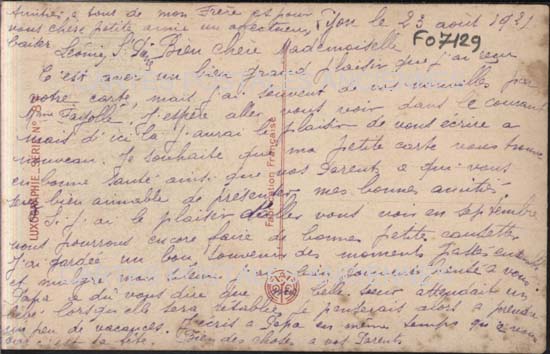 Amitiés à tous de mon Frère et pour
vous chère petite amie un affectueux
baiser
Léonie
Lyon le 23 août 1931
F07129
Bien chère Mademoiselle
C'est avec un bien grand plaisir que j'ai reçu
votre carte, mais j'ai souvent de vos nouvelles par
Mme Fayolle. J'espère aller vous voir dans le courant
mais d'ici là j'aurai le plaisir de vous écrire à
nouveau. Je souhaite que ma petite carte vous trouve
en bonne santé ainsi que vos Parents à qui vous
bien aimable de présenter mes bonnes amitiés.
Si j'ai le plaisir d'aller vous voir en septembre
nous pourrons encore faire de bonnes petites causettes
J'ai gardé un bon souvenir des moments passés ensemble
et malgré mon silence j'ai bien souvent pensé à vous
Papa a dû vous dire que belle sœur attendait un
bébé lorsqu'elle sera rétablie je penserais alors à prendre
un peu de vacances. J'écris à Papa en même temps qu'à vous
Bien des choses à vos Parents
LUXOGRAPHIE SERIE N°
Fabrication Française